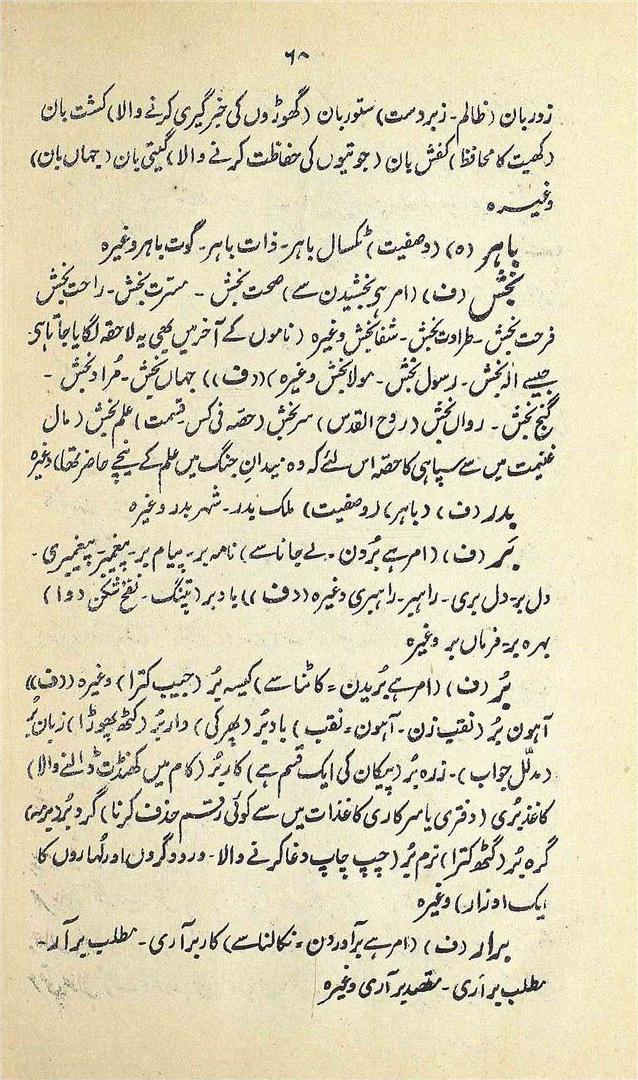 ۶۸
زور بان (ظالم۔ زبردست) ستور بان (گھوڑوں کی خبر گیری کرنے والا) کشت بان
(کھیت کا محافظ) کفش بان (جوتیوں کی حفاظت کرنے والا) گیتی بان (جہاں بان)
وغیرہ
باہر (ہ) (وصفیت) ٹکسال باہر۔ ذات باہر۔ گوت باہر وغیرہ
بخش (ف) (امر ہی بخشیدن سے) صحت بخش ۔ مسرت بخش۔ راحت بخش
فرحت بخش۔ طراوت بخش۔ شفا بخش وغیرہ (ناموں کے آخر میں بھی یہ لاحقہ لگایا جاتا ہی
جیسے الہ بخش۔ رسول بخش۔ مولا بخش وغیرہ) ((ف)) جہاں بخش۔ مُراد بخش ۔
گنج بخش۔ رواں بخش (روح القدس) سر بخش (حصہ فی کس۔ قسمت) علم بخش (مال
غنیمت میں سے سپاہی کا حصہ اس لئے کہ وہ میدانِ جنگ میں علم کے نیچے حاضر تھا) وغیرہ
بدر (ف) (باہر) (وصفیت) ملک بدر۔ شہر بدر وغیرہ
بَر (ف) (امر ہے بُردن ۔ لے جانا سے) نامہ بر۔ پیام بر۔ پیغمبر۔ پیغمبری۔
دل بر۔ دل بری۔ راہبر۔ راہبری وغیرہ ((ف)) باد بر (پتنگ۔ نفخ شکن دوا)
بہرہ بر۔ فرماں بر وغیرہ
بُر (ف) (امر ہے بُریدن = کاٹنا سے) کیسہ بُر (جیب کترا) وغیرہ ((ف))
آہون بُر (نقب زن۔ آہون = نقب) باد بُر (پھرکی) دار بُر (کٹھ پھوڑا) زبان بُر
(مدلّل جواب)۔ زرہ بُر (پیکان کی ایک قسم ہے) کار بُر (کام میں کھنڈت ڈالنے والا)
کاغذ بُری (دفتری یا سرکاری کاغذات میں سے کوئی رقم حذف کرنا) گرو بُر
گرہ بُر (گٹھ کترا) نرم بُر (چپ چاپ دغا کرنے والا۔ درودگروں اور لُہاروں کا
ایک اوزار) وغیرہ
برار (ف) (امر ہے برآوردن = نکالنا سے) کار برآری۔ مطلب برآر۔
مطلب برآری۔ مقصد برآری وغیرہ